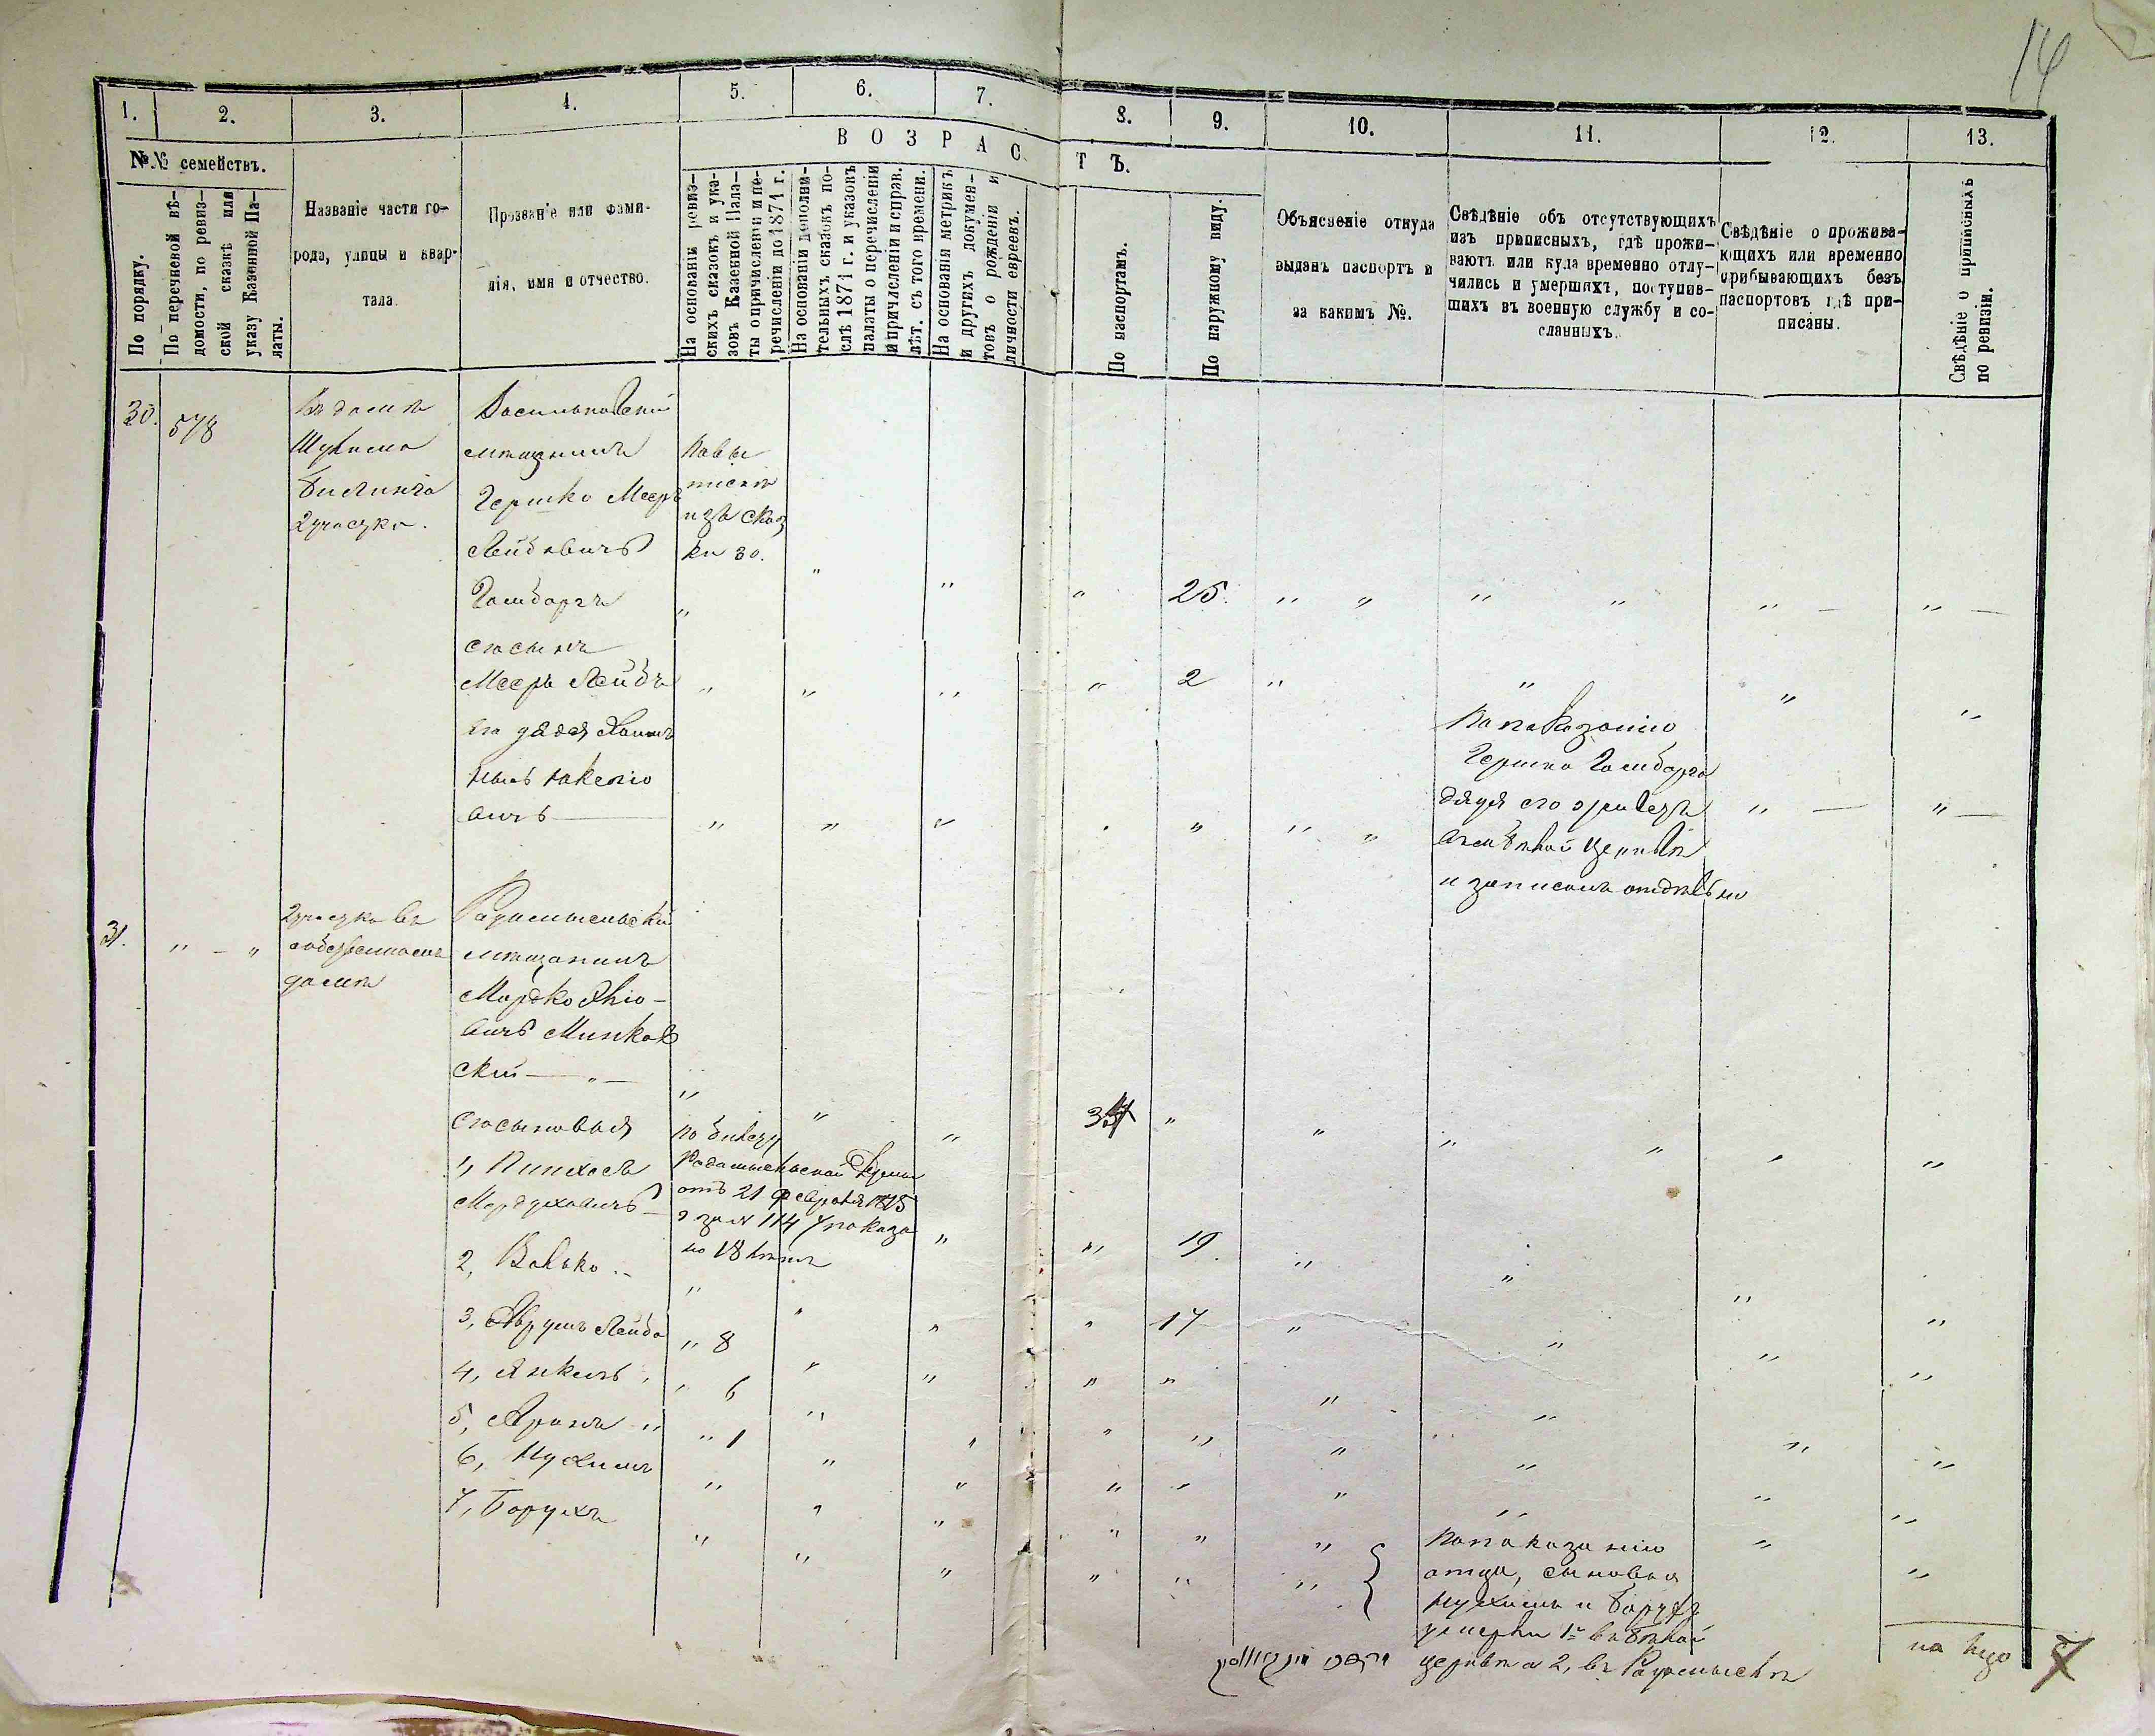 14
1. 2. 3. 4. 5. 6. 7. 8. 9. 10. 11. 12. 13.
№№ семействъ.
В О З Р А С Т Ъ.
По порядку.
По перечневой вѣ-
домости, по ревиз-
ской сказкѣ или
указу Казенной Па-
латы.
Названіе части го-
рода, улицы и квар-
тала
Прозваніе или фами-
лія, имя и отчество.
На основаніи ревиз-
скихъ сказокъ и ука-
зовъ Казенной Пала-
ты о причисленіи и пе-
речисленіи до 1871 г.
На основаніи дополни-
тельныхъ сказокъ по-
слѣ 1871 г. и указовъ
палаты о перечисленіи
и причисленіи и справ.
лѣт. съ того времени.
На основаніи метрикъ
и другихъ докумен-
товъ о рожденіи и
личности евреевъ.
По паспортамъ.
По наружному виду.
Объясненіе откуда
выданъ паспортъ и
за какимъ №.
Свѣдѣніе объ отсутствующихъ
изъ приписныхъ, гдѣ прожи-
ваютъ или куда временно отлу-
чились и умершихъ, поступив-
шихъ въ военную службу и со-
сланныхъ.
Свѣдѣніе о прожива-
ющихъ или временно
прибывающихъ безъ
паспортовъ гдѣ при-
писаны.
Свѣдѣніе о приписныхъ
по ревизіи.
30. 578
Въ домѣ
2 участка.
Васильковскій
мѣщанинъ
Гершко Меер
Лейбовичъ
Гомбаргъ
его сынъ
Мееръ Лейбъ
его дядя
по вы
пискѣ
изъ сказ
ки 30.
25.
2
По показанію
Гершка Гомбарга
дядя его
Бѣлой Церкви
и записанъ отдѣльно
31.
2 участка въ
собственномъ
домѣ
Радомысльскій
мѣщанинъ
Мордко
вичъ Минков
скій
34
его сыновья
1, Пинхосъ
Мордуховичъ
по билету
Радомысльской Думы
отъ 21 февраля 1875
за № 1147 показа
но 18 лѣтъ
19.
2, Волько
17
3, Аврумъ Лейба 8
4, Янкель 6
5, Аронъ 1
6, Нухимъ
7, Борухъ
По показанію
отца, сыновья
Нухимъ и Борухъ
умерли 1й въ Бѣлой
церквѣ а 2, въ Радомыслѣ
на лицо 7